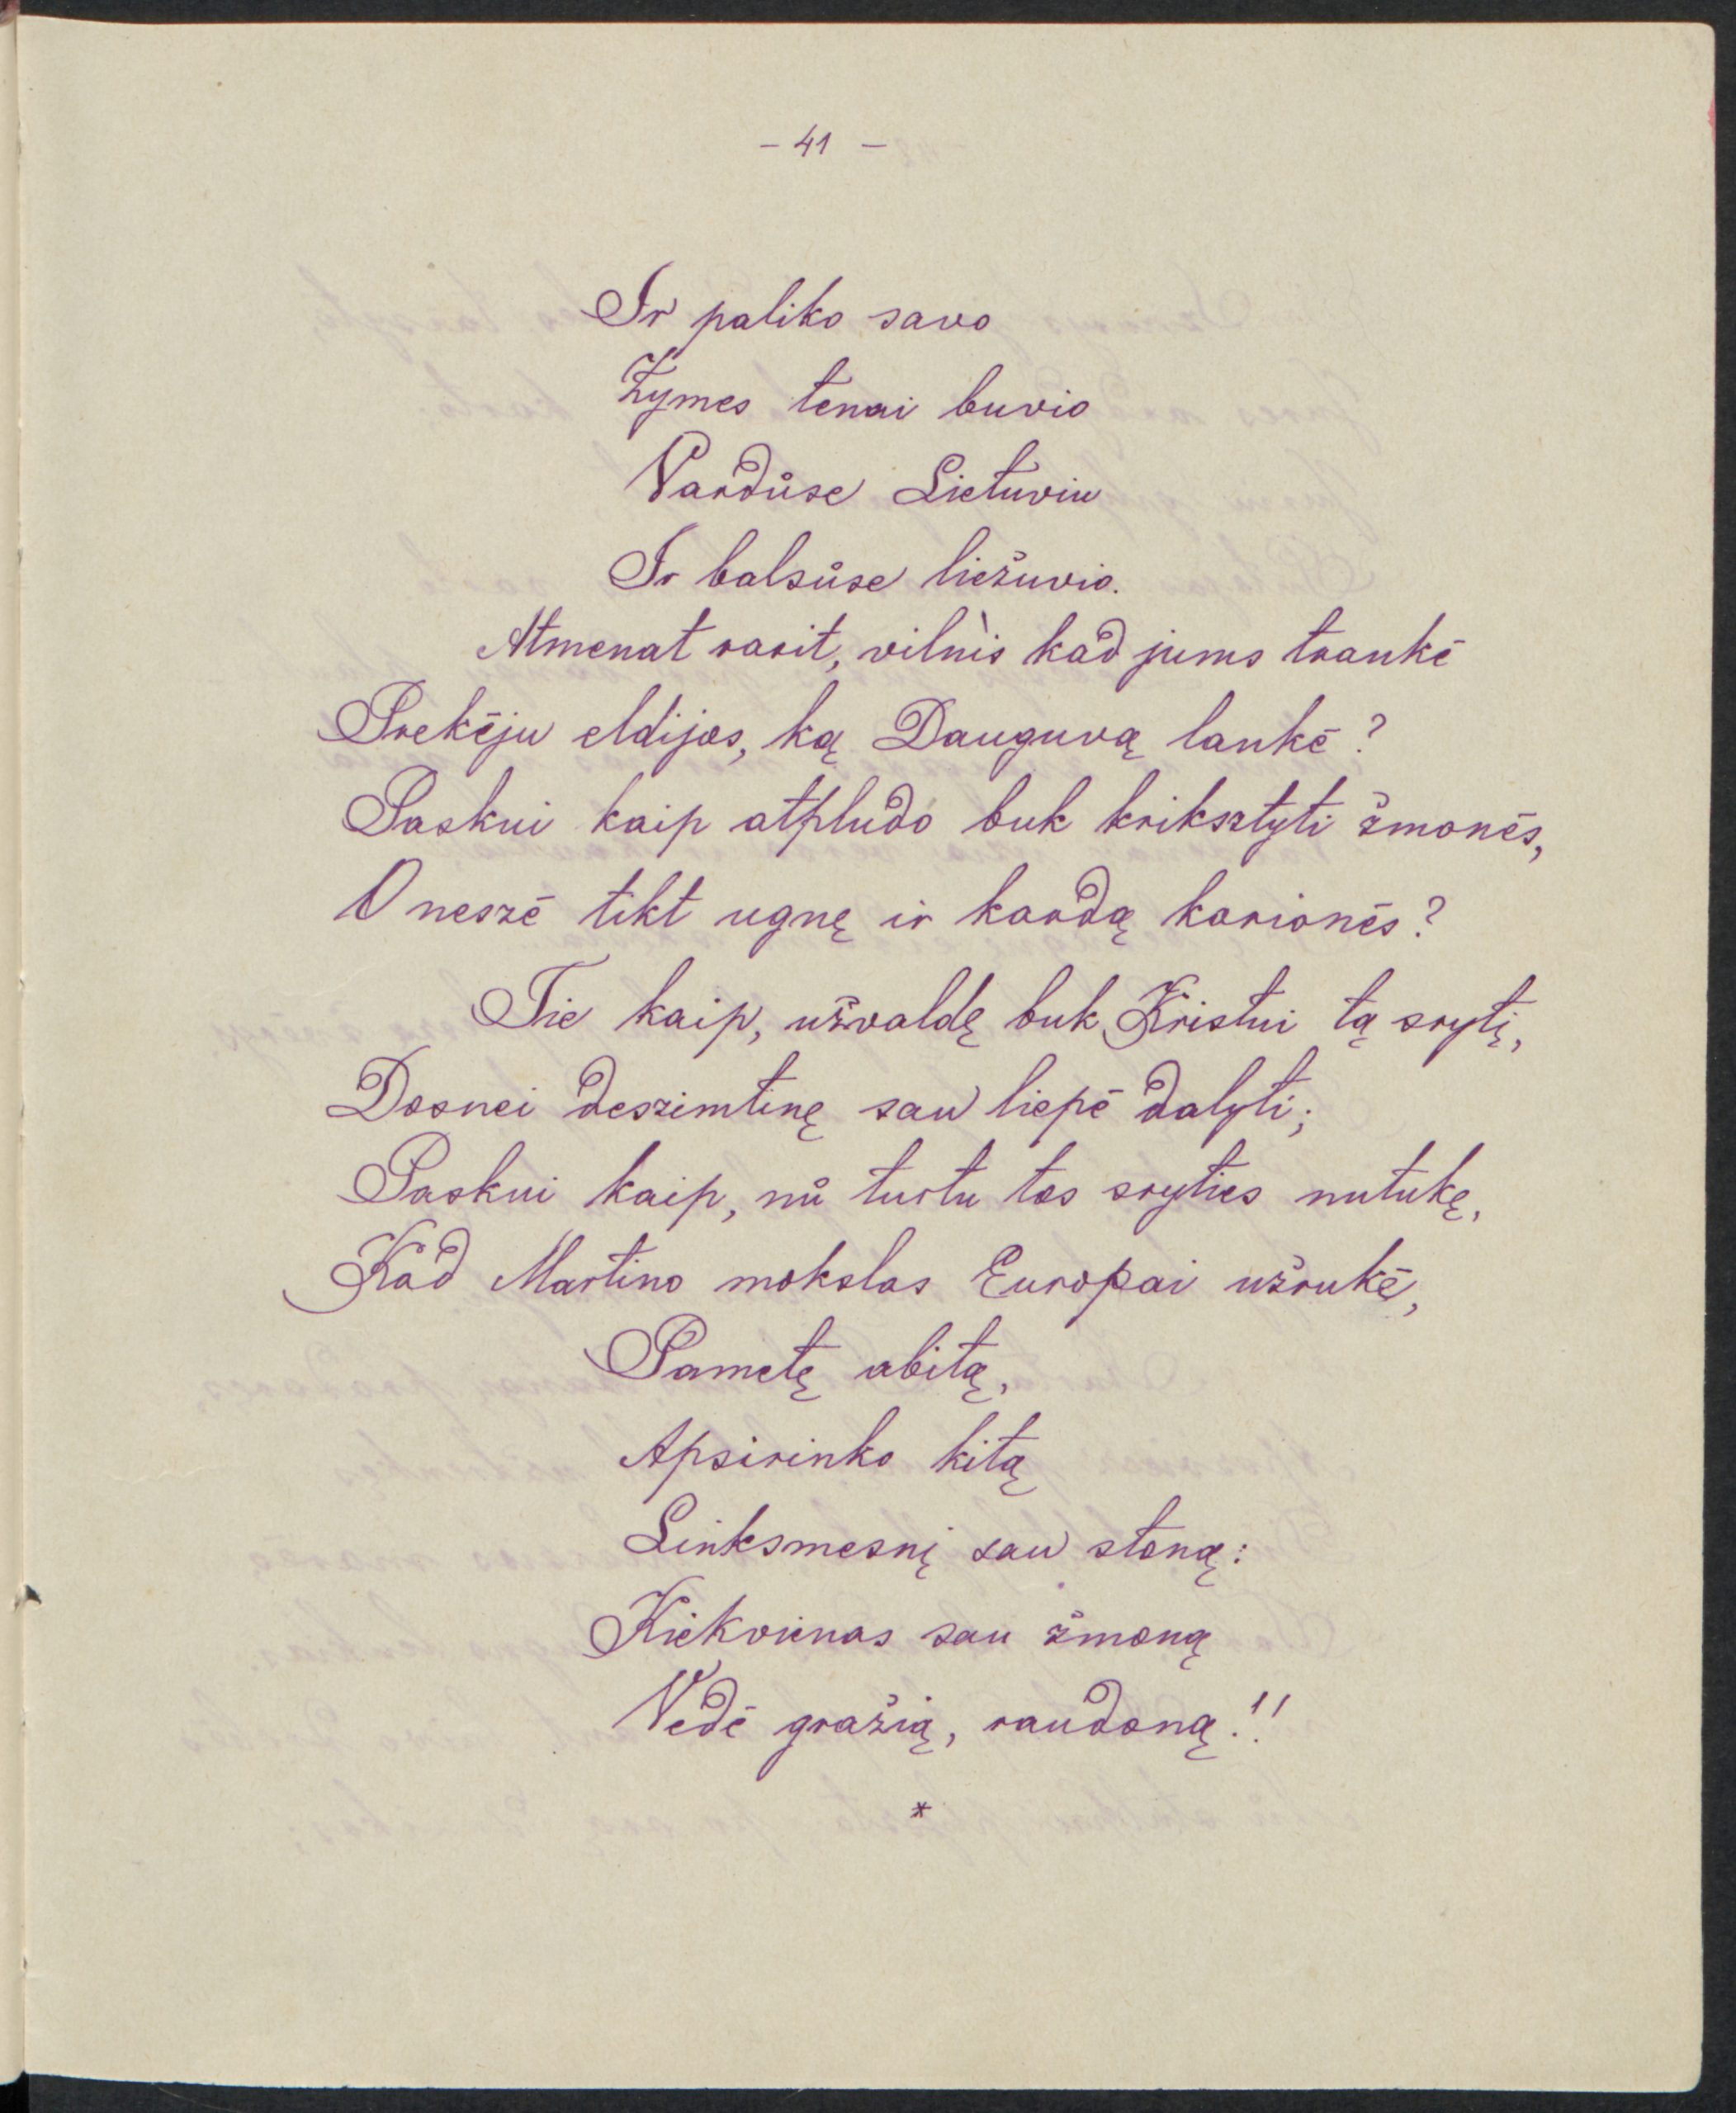 - 41 -
Ir paliko savo
Żymes tenai buvio
Vardůse Lietuviu
Ir balsůse liežuvio.
Atmenat rasit, vilnìs kad jums trankė
Prekėju eldijos, ką Dauguvą lankė?
Paskui kaip atpludo buk poszyti žmonės,
O neszė tikt ugnę ir kardą karionės?
Tie kaip, užvaldę buk Kristui tą srytį,
Dosnei deszimtinę sau liepė dalyti;
Paskui kaip, nů turtu tos sryties nutukę,
Kad Martino mokslas Europai užrukė,
Pametę abitą,
Apsirinko kitą
Linksmesnį sau stoną:
Kiekvienas sau žmoną
Vedė gražią, raudoną!!
*